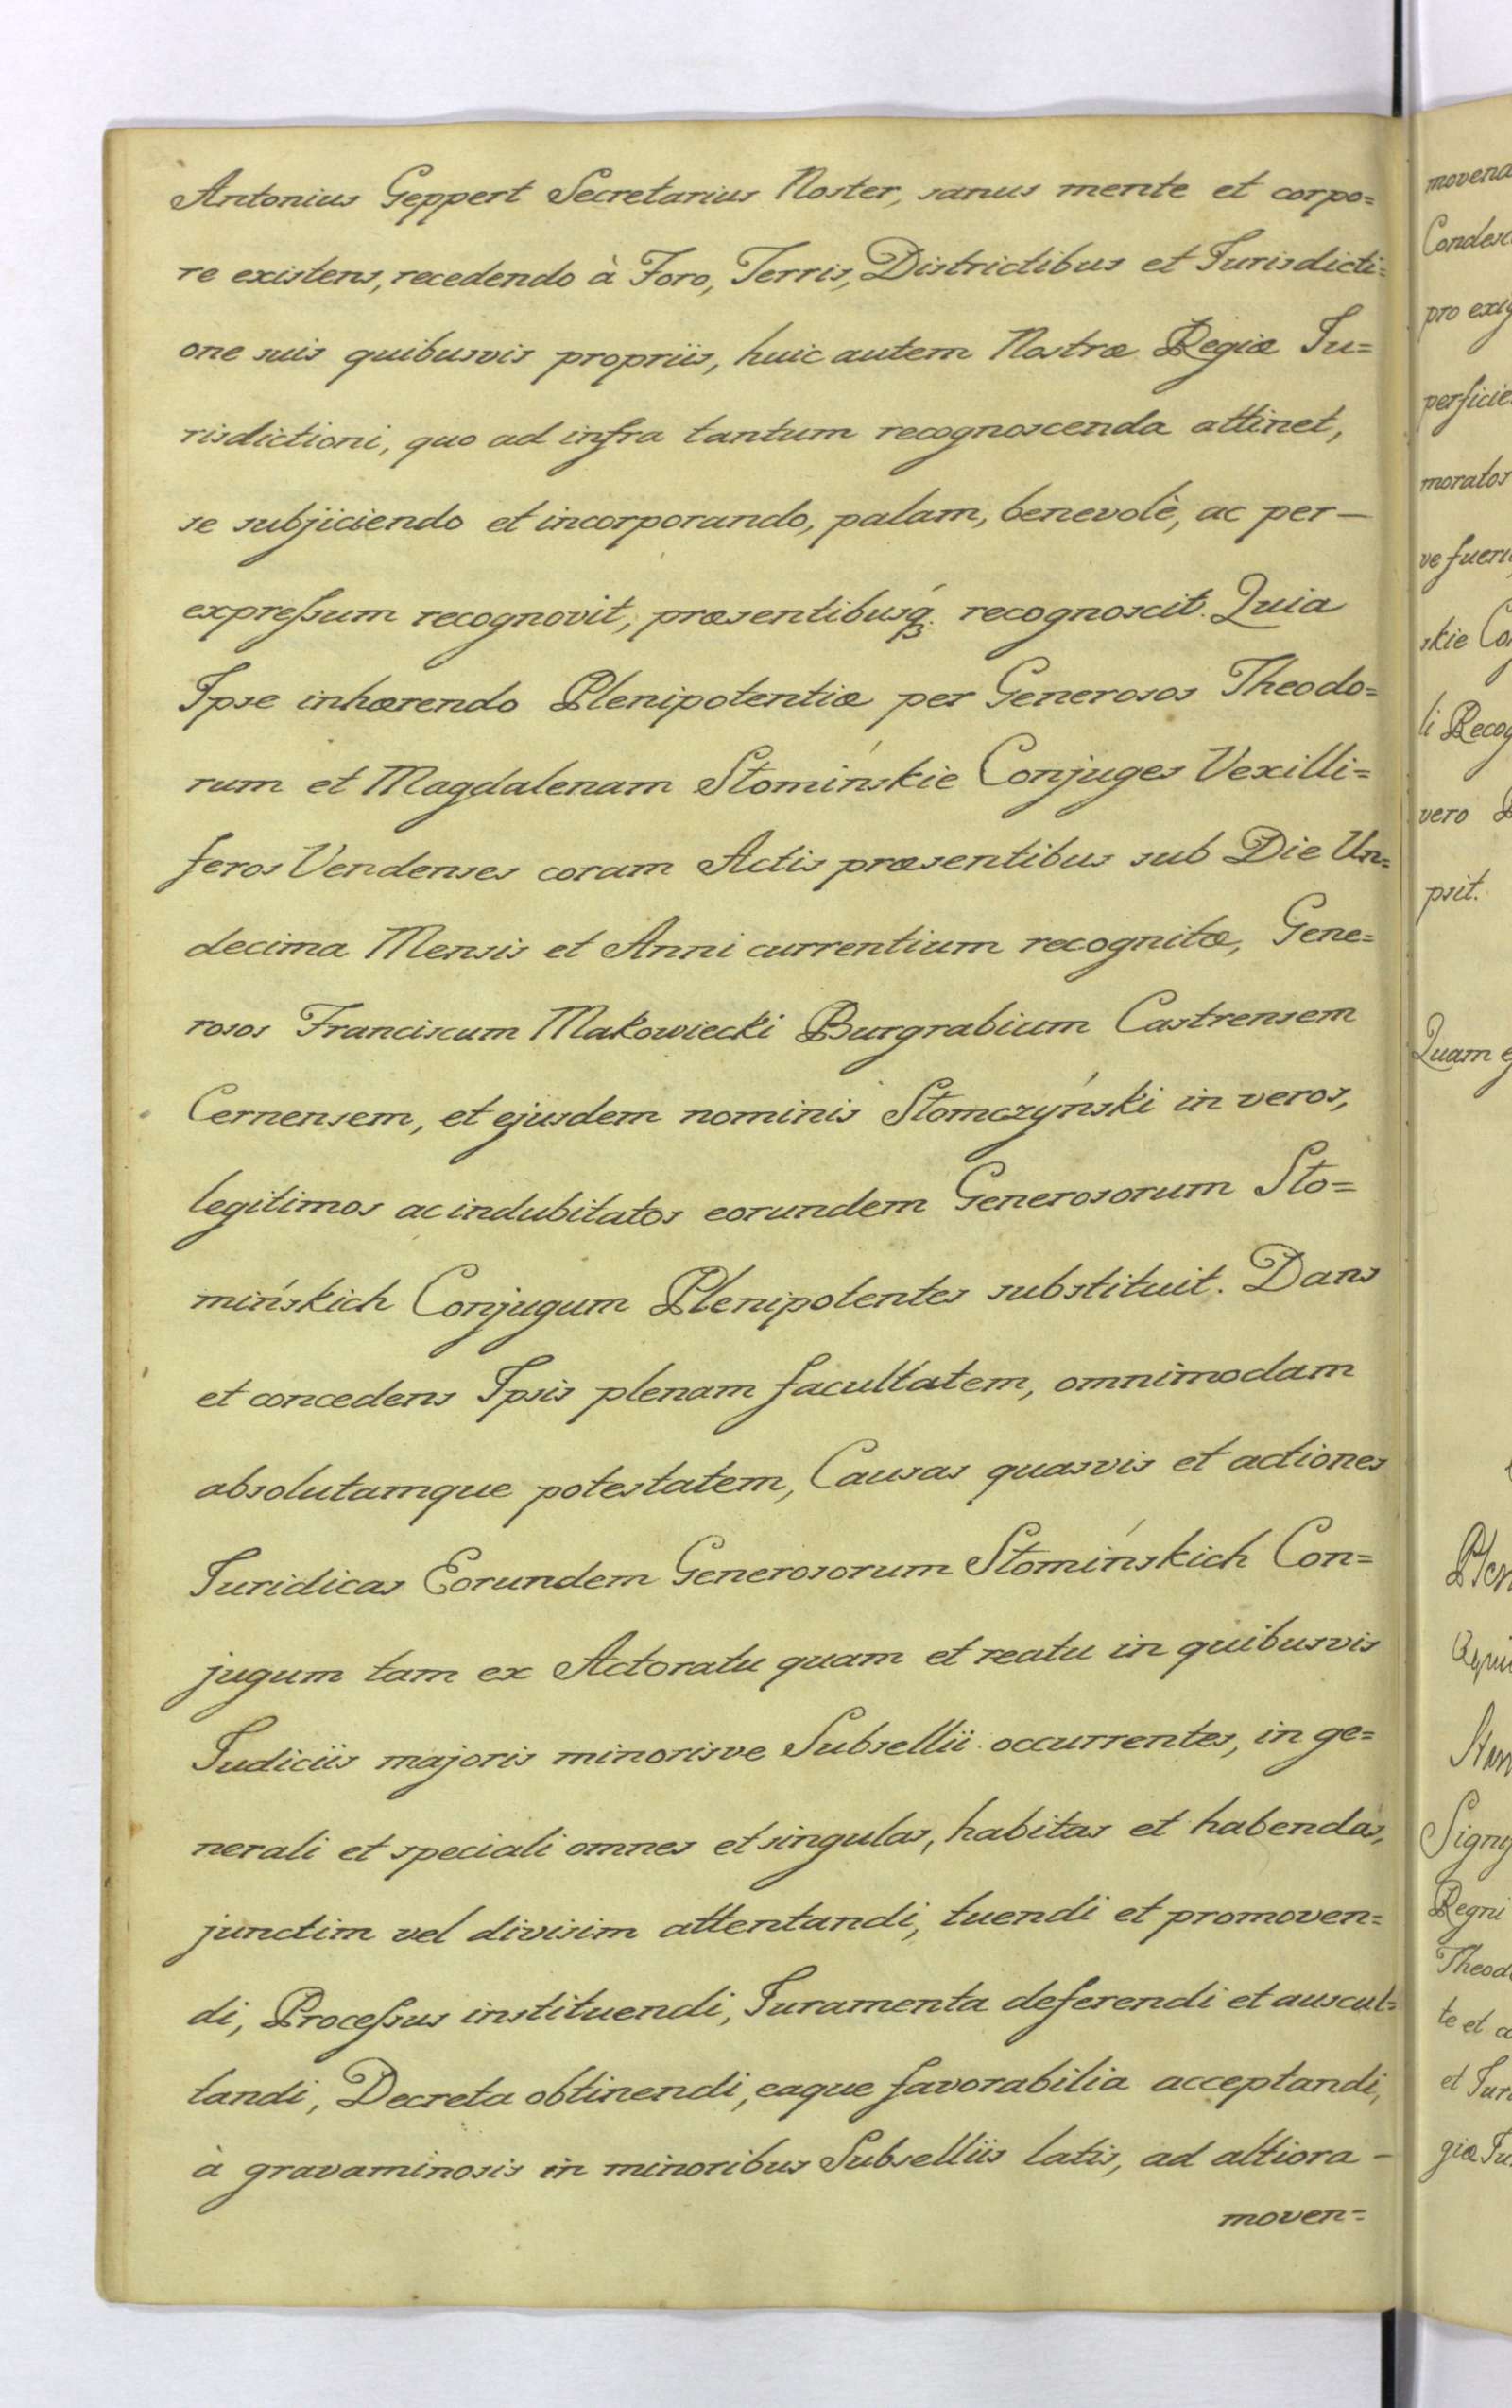 Antonius Geppert Secretarius Noster, sanus mente et corpo=
re existens, recedendo à Foro, Terris, Districtibus et Jurisdicti=
one suis quibusvis propriis, huic autem Nostræ Regiæ Ju=
risdictioni, quo ad infra tantum recognoscenda attinet,
se subjiciendo et incorporando, palam, benevolè, ac per—
expreſsum recognovit, præsentibusq́ꝫ recognoscit. Quia
Ipse inhærendo Plenipotentiæ per Generosos Theodo=
rum et Magdalenam Słomińskie Conjuges Vexilli=
feros Vendenses coram Actis præsentibus sub Die Un=
decima Mensis et Anni currentium recognitæ, Gene=
rosos Franciscum Makowiecki Burgrabium Castrensem
Cernensem, et ejusdem nominis Słomczyński in veros,
legitimos ac indubitatos eorundem Generosorum Sło=
mińskich Conjugum Plenipotentes substituit. Dans
et concedens Ipsis plenam facultatem, omnimodam
absolutamque potestatem, Causas quasvis et actiones
Juridicas Eorundem Generosorum Słomińskich Con=
jugum tam ex Actoratu quam et reatu in quibusvis
Judiciis majoris minorisve Subsellii occurrentes, in ge=
nerali et speciali omnes et singulas, habitas et habendas,
junctim vel divisim attentandi, tuendi et promoven=
di, Proceſsus instituendi, Juramenta deferendi et auscul=
tandi, Decreta obtinendi, eaque favorabilia acceptandi,
à gravaminosis in minoribus Subselliis latis, ad altiora —
moven=
movena
Condesc
pro exig
perficie
morator
ve fueri
skie Co
li Recog
vero
psit.
Quam e
Plen
Signy
Regni
Theod
te et c
et Jur
giæ Ju